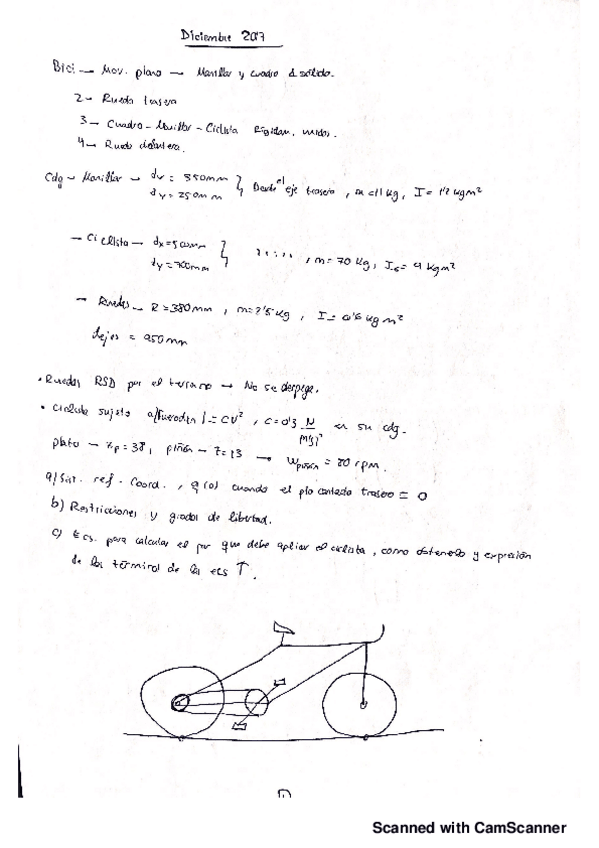 Diciembre 2017
Bici → Mov. plano → Manillar y cuadro
2 → Rueda trasera
3 → Cuadro - Manillar - Ciclista
4 → Rueda delantera.
Cdg → Manillar → dx = 350mm
dy = 250mm } Desde el eje trasero, m=11 kg, I = 1'2 kgm²
→ Ciclista → dx=500mm
dy=700mm } " " " " ", m = 70 kg, IG = 4 kgm²
→ Ruedas → R = 380mm, m=2'5kg, I = 0'6 kgm²
dejes = 950mm
• Ruedas RSD por el terreno → No se despega.
• Ciclista sujeto a |= CV², C=0'3 N/(m/s)² en su cdg.
plato → zp=38, piñón → z=13 → = 80 rpm.
a) Sist. ref. Coord., q(0) cuando el contacto trasero = 0
b) Restricciones y grados de libertad.
c) Ecs. para calcular el par que debe aplicar el ciclista, como obtenerlo y expresión
de los términos de las ecs ↑.
Scanned with CamScanner